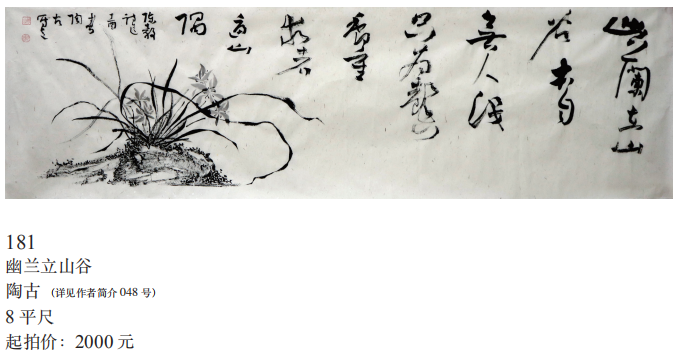 幽蘭在山
谷本自
無人識
只為馨香
重
求者
遍山
隅
陳毅
181
幽兰立山谷
陶古 （详见作者简介 048 号）
8 平尺
起拍价：2000 元